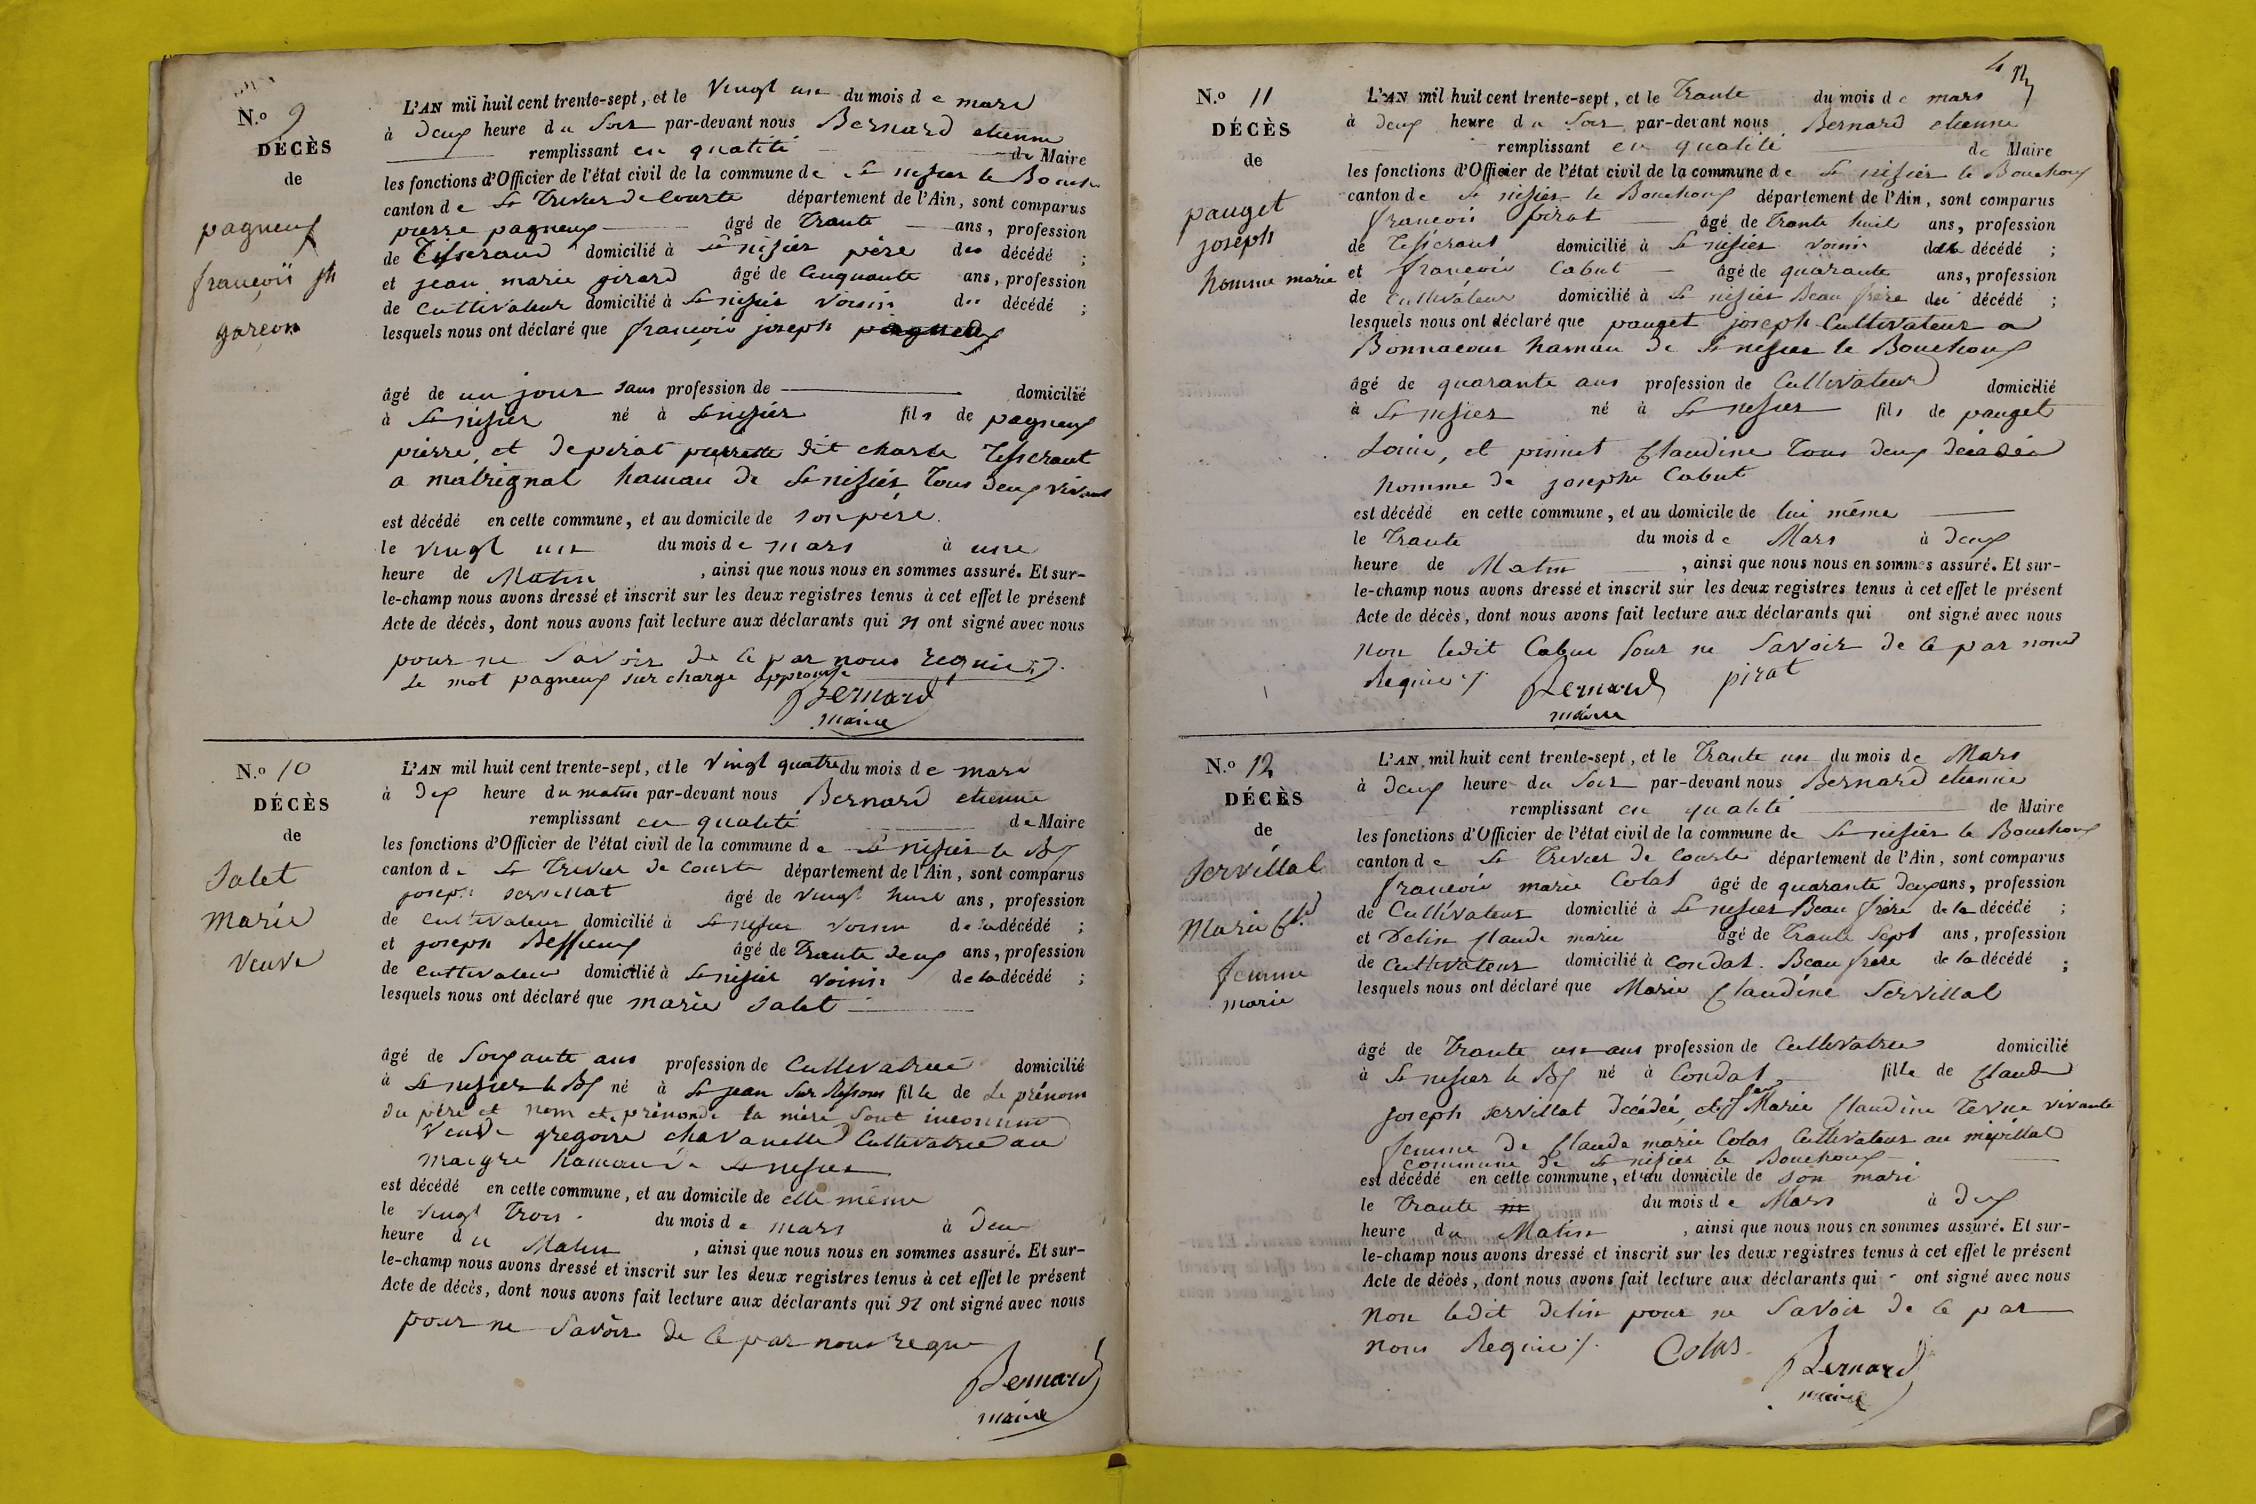 N.o 9
DÉCÈS
de
pagneux
françois jh
garçon
L'AN mil huit cent trente-sept, et le vingt un du mois de mars
à deux heure du soir par-devant nous Bernard etienne
remplissant en qualité de Maire
les fonctions d'Officier de l'état civil de la commune de St nisier le Bouch
canton de St trivier de Courte département de l'Ain, sont comparus
pierre pagneux âgé de trante ans, profession
de tisserand domicilié à St nisier père du décédé ;
et jean marie girard âgé de cinquante ans, profession
de cultivateur domicilié à St nisier voisin du décédé ;
lesquels nous ont déclaré que françois joseph pagneux
âgé de un jour sans profession de domicilié
à St nisier né à St nisier fils de pagneux
pierre, et de pirat pierrette dit charle tisserant
a matrignat hamau de St nisier, tous deux vivant
est décédé en cette commune, et au domicile de son père.
le vingt un du mois de mars à une
heure de Matin , ainsi que nous nous en sommes assuré. Et sur-
le-champ nous avons dressé et inscrit sur les deux registres tenus à cet effet le présent
Acte de décès, dont nous avons fait lecture aux déclarants qui n ont signé avec nous
pour ne savoir de ce par nous requis
Le mot pagneux sur charge approuvé
Bernard
maire
N.o 10
DÉCÈS
de
Salet
Marie
Veuve
L'AN mil huit cent trente-sept, et le vingt quatre du mois de mars
à deux heure du matin par-devant nous Bernard etienne
remplissant en qualité de Maire
les fonctions d'Officier de l'état civil de la commune de St nisier le Bx
canton de St trivier de Courte département de l'Ain, sont comparus
joseph servillat âgé de vingt huit ans, profession
de cultivateur domicilié à St nisier voisin de la décédé ;
et joseph Beffieux âgé de trante deux ans, profession
de cultivateur domicilié à St nisier voisin de la décédé ;
lesquels nous ont déclaré que marie salet
âgé de soixante ans profession de Cultivatrice domicilié
à St nisier le Bx né à St jean sur Ressous fille de Le prénom
du père et nom et prénom de la mère sont inconnus
veuve gregoire chavanelle Cultivatrice au
maigre hamau de St nisier
est décédé en cette commune, et au domicile de elle même
le vingt trois du mois de mars à deux
heure du Matin , ainsi que nous nous en sommes assuré. Et sur-
le-champ nous avons dressé et inscrit sur les deux registres tenus à cet effet le présent
Acte de décès, dont nous avons fait lecture aux déclarants qui n ont signé avec nous
pour ne savoir de ce par nous requi
Bernard
maire
4
N.o 11
DÉCÈS
de
pauget
joseph
homme marie
L'AN mil huit cent trente-sept, et le trante du mois de mars
à deux heure du soir par-devant nous Bernard etienne
remplissant en qualité de Maire
les fonctions d'Officier de l'état civil de la commune de St nisier le Bouchoux
canton de St nisier le Bouchoux département de l'Ain, sont comparus
françois pirat âgé de trante huit ans, profession
de tisserant domicilié à St nisier voisin du décédé ;
et françois Cabut âgé de quarante ans, profession
de cultivateur domicilié à St nisier Beau frère du décédé ;
lesquels nous ont déclaré que pauget joseph Cultivateur a
Bonnacour hamau de St nisier le Bouchoux
âgé de quarante ans profession de Cultivateur domicilié
à St nisier né à St nisier fils de pauget
Louis, et pinnet Claudine tous deux décédés
homme de josephe Cabut
est décédé en cette commune, et au domicile de lui même
le trante du mois de Mars à deux
heure de Matin , ainsi que nous nous en sommes assuré. Et sur-
le-champ nous avons dressé et inscrit sur les deux registres tenus à cet effet le présent
Acte de décès, dont nous avons fait lecture aux déclarants qui ont signé avec nous
non ledit Cabut pour ne savoir de ce par nous
Requis Bernard pirat
maire
N.o 12
DÉCÈS
de
servillat
Marie Cl.d
femme
marie
L'AN mil huit cent trente-sept, et le trante un du mois de Mars
à deux heure du soir par-devant nous Bernard etienne
remplissant en qualité de Maire
les fonctions d'Officier de l'état civil de la commune de St nisier le Bouchoux
canton de St trivier de Courte département de l'Ain, sont comparus
françois marie Colas âgé de quarante deux ans, profession
de Cultivateur domicilié à St nisier Beau frère de la décédé ;
et Delin Claude marie âgé de trante sept ans, profession
de Cultivateur domicilié à Condat. Beau frère de la décédé ;
lesquels nous ont déclaré que Marie Claudine Servillat
âgé de trante un ans profession de Cultivatrice domicilié
à St nisier le Bx né à Condat fille de Claude
joseph servillat décédé, et de Marie Claudine tevue vivante
femme de Claude marie Colas Cultivateur au mépillat
commune de St nisier le Bouchoux
est décédé en cette commune, et au domicile de son mari
le trante du mois de Mars à deux
heure du Matin , ainsi que nous nous en sommes assuré. Et sur-
le-champ nous avons dressé et inscrit sur les deux registres tenus à cet effet le présent
Acte de décès, dont nous avons fait lecture aux déclarants qui ont signé avec nous
non ledit delin pour ne savoir de ce par
nous Requis Colas Bernard
maire